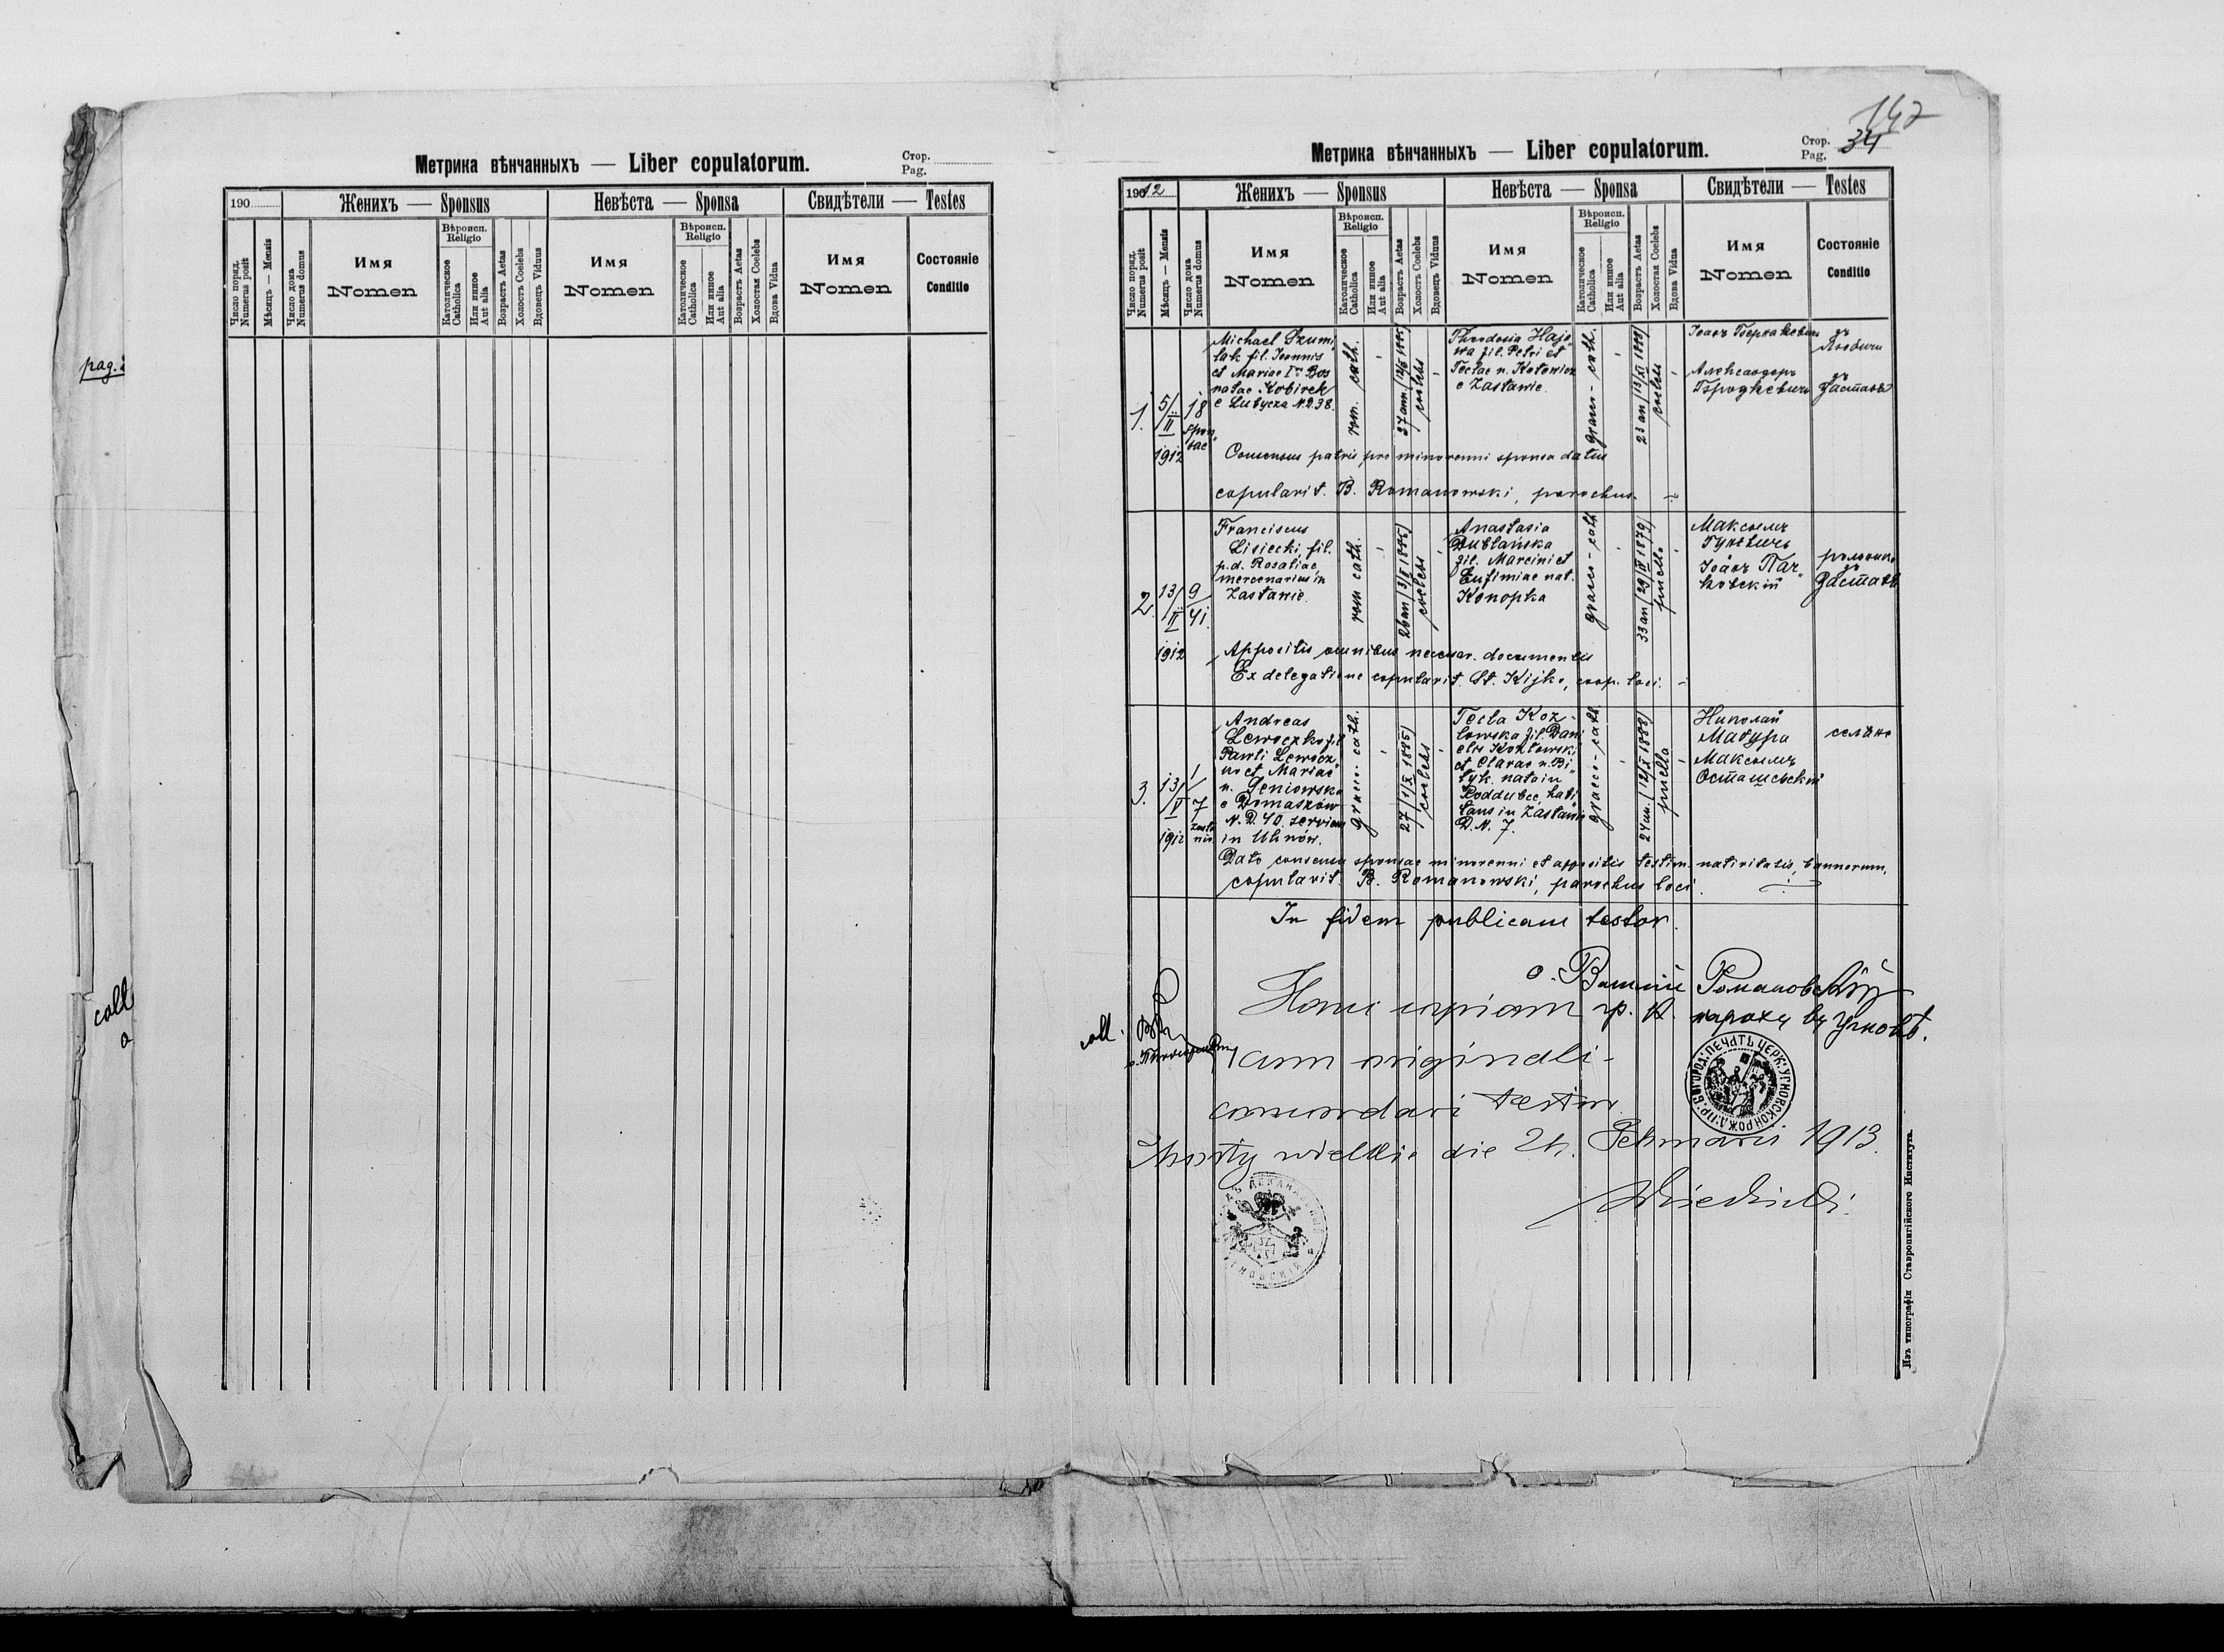 Метрика вѣнчанныхъ — Liber copulatorum.
Стор.
Pag.
190
Женихъ — Sponsus
Невѣста — Sponsa
Свидѣтели — Testes
Число поряд.
Numerus posit
Мѣсяцъ — Mensis
Число дома
Numerus domus
Имя
Nomen
Вѣроисп.
Religio
Католическое
Catholica
Или инное
Aut alia
Возрасть Aetas
Холость Coelebs
Вдовецъ Viduus
Имя
Nomen
Вѣроисп.
Religio
Католическое
Catholica
Или инное
Aut alia
Возрасть Aetas
Холостая Coelebs
Вдова Vidua
Имя
Nomen
Состояніе
Conditio
pag.
coll
142
Метрика вѣнчанныхъ — Liber copulatorum.
Стор.
Pag. 34
1912
Женихъ — Sponsus
Невѣста — Sponsa
Свидѣтели — Testes
Число поряд.
Numerus posit
Мѣсяцъ — Mensis
Число дома
Numerus domus
Имя
Nomen
Вѣроисп.
Religio
Католическое
Catholica
Или инное
Aut alia
Возрасть Aetas
Холость Coelebs
Вдовецъ Viduus
Имя
Nomen
Вѣроисп.
Religio
Католическое
Catholica
Или инное
Aut alia
Возрасть Aetas
Холостая Coelebs
Вдова Vidua
Имя
Nomen
Состояніе
Conditio
1.
5/II
1912
18
spon
sae
Michael Szumi
lak fil. Joannis
et Mariae Iv. Bos
natae Kobirek
e Lubycza N.D. 38.
rom. cath.
coelebs
Theodosia Hajo
wa fil. Petri et
Teclae n. Kotowicz
e Zastawie
graeco-cath.
coelebs
Александеръ
Consensus patris pro minorenni sponsa datus
copulavit. B. Romanowski, parochus.
2.
13/II
1912
9/41.
Franciscus
Lisiecki, fil.
p.d. Rosaliae
mercenarius in
Zastawie.
rom cath.
coelebs
Anastasia
Dublańska
fil. Marcini et
Eufimiae nat.
Konopka
graeco-cath
33 an (29/IV 1879)
puella
Максымъ
Іоанъ Пач
ковскій
Appositis omnibus necessar. documentis
Ex delegatione copulavit. St. Kijko, coop. loci.
3.
13/V
1912
1/7
Andreas
Lewoczko fil
Pawli Lewocz
ko et Mariae
n. Geniowska
e Domaszów
N.D. 40. serviens
in Uhnów.
graeco-cath.
coelebs
Tecla Koz
lowska fil. Dani
elis Kozlowski
et Clarae n. Bi
lyk. nata in
Poddubce, habi
tans in Zastawie
D.N. 7.
graeco-cath.
puella
Николай
Мацура
Максымъ
Осташевскій
селяне
Dato consensu sponsae minorenni et appositis testim. nativitatis, bannorum,
copulavit. B. Romanowski, parochus loci.
In fidem publicam testor.
о. Романовскій
гр. к. парохъ въ Угновѣ.
coll.
Hanc copiam
cum originali
concordari testor.
die 24. Februarii 1913.
Изъ типографіи Ставропигійского Института.